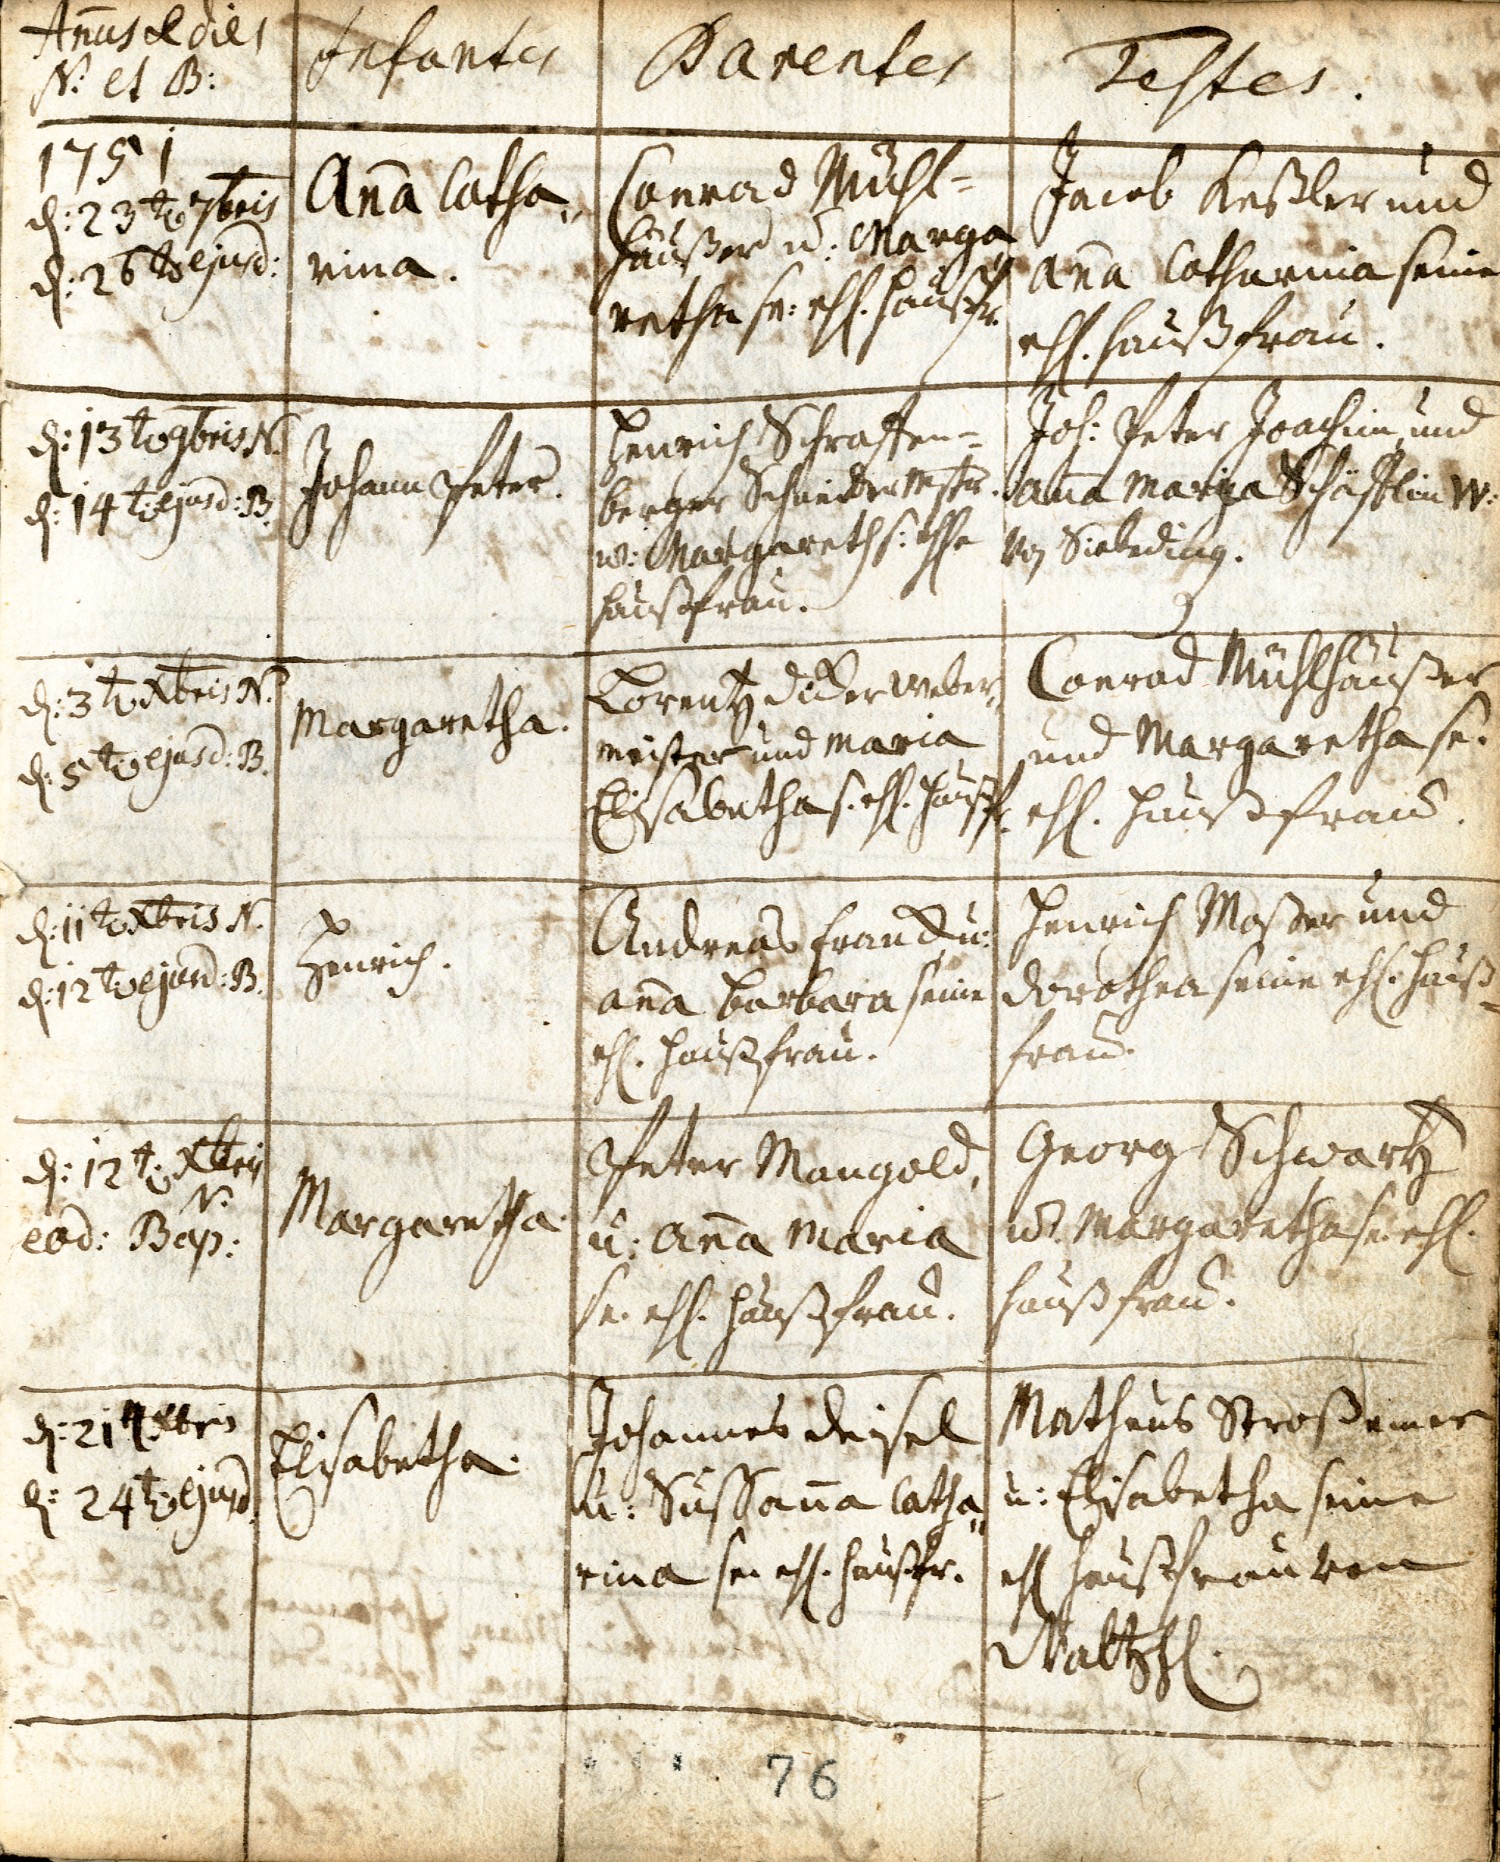 Annus & dies
N: et B:
Infantes
Parentes
Testes.
1751
d: 23t 7bris
d: 26t ejusd:
Aña Catha„
rina.
Conrad Mühl=
häußer u: Marga„
retha se: ehl. haußfr.
Jacob Keßler und
aña Catharina seine
ehl. haußfrau.
d: 13t 9bris N.
d: 14t ejusd: B.
Johann Peter.
Henrich Schraffen=
berger Schneider Mstr.
u: Margareth s: ehle
haußfrau.
Joh: Peter Joachim und
aña Maria Schäfflin W:
von
d: 3t Xbris N.
d: 5t ejusd: B.
Margaretha.
Lorentz dicker Weber„
meister und Maria
Elisabetha s. ehl. haußfr.
Conrad Mühlhäußer
und Margaretha se.
ehl. haußfrau.
d: 11t Xbris N.
d: 12t ejusd: B.
Henrich.
Andreas Franck u:
aña Barbara seine
ehl. haußfrau.
Henrich Moßer und
dorothea seine ehl. hauß=
frau.
d: 12t Xbris
N.
eod: Bap:
Margaretha.
Peter Mangold,
u: aña Maria
se. ehl. haußfrau.
Georg Schwartz
u: Margaretha se. ehl.
haußfrau.
d: 21t Xbris
d: 24t ejusd.
Elisabetha.
Johannes deisel
u: Sussaña Catha„
rina se. ehl. haußfr.
Matheus Stroßemer
u: Elisabetha seine
ehl haußfrau von
76